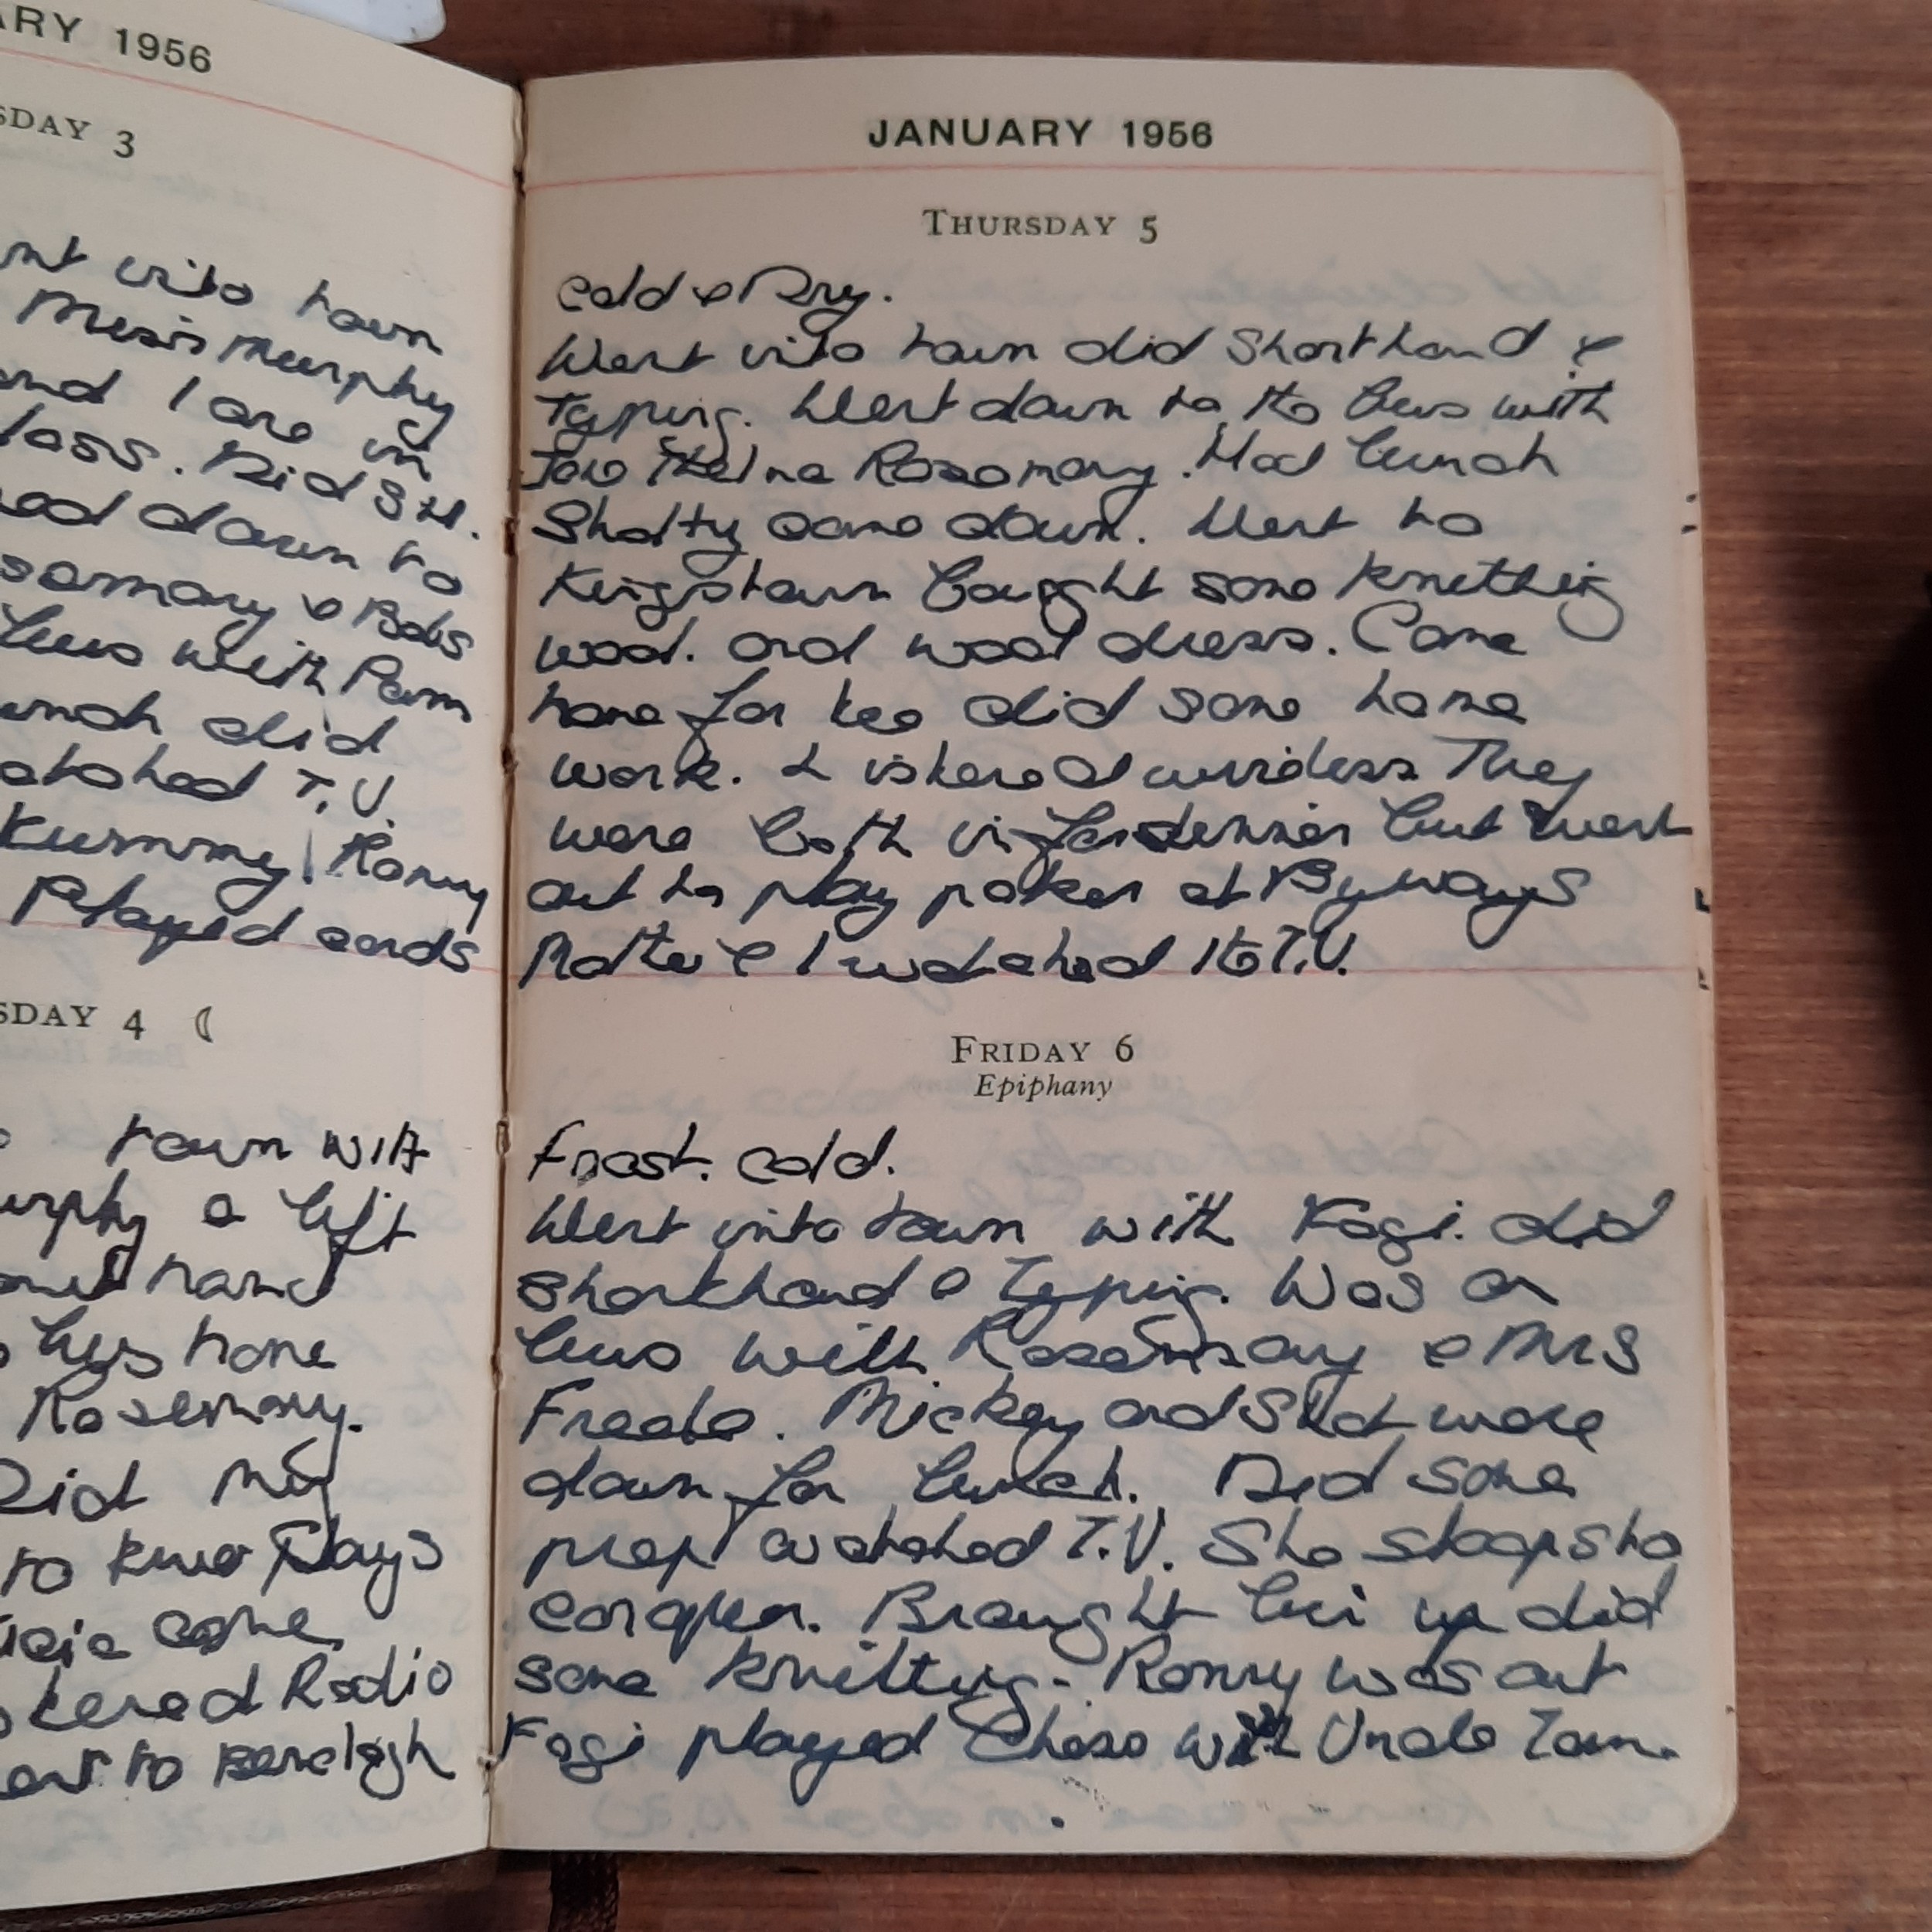 ARY 1956
SDAY 3
nt into town
Murphy
and I are in
lass. Did SH.
down to
semary & Babs
bus with Pam
unch did
atched T.V.
Kummy Ronny
Played cards
SDAY 4
town with
urphy a left
hand
bus home
Rosemary.
Did my
to two Plays
came
stened Radio
to
JANUARY 1956
THURSDAY 5
cold & Dry.
Went into town did Shorthand &
Typing. Went down to the Bus with
Thelma Rosemary. Had lunch
Sholty came down. Went to
Kingstown bought some knitting
wool. and wool dress. Came
home for tea did some home
work. Listened wirrless They
were both in for dinner but went
out to play poker at Byways
& I watched the T.V.
FRIDAY 6
Epiphany
Frost. cold.
Went into town with Fogi. did
Shorthand & Typing. Was on
bus with Rosemary & Mrs
Mickey and were
down for lunch. Did some
prep watched T.V. She stoops to
conquer. Brought in did
some knitting. Ronny was out
Fogi played Chess with Uncle Tom.